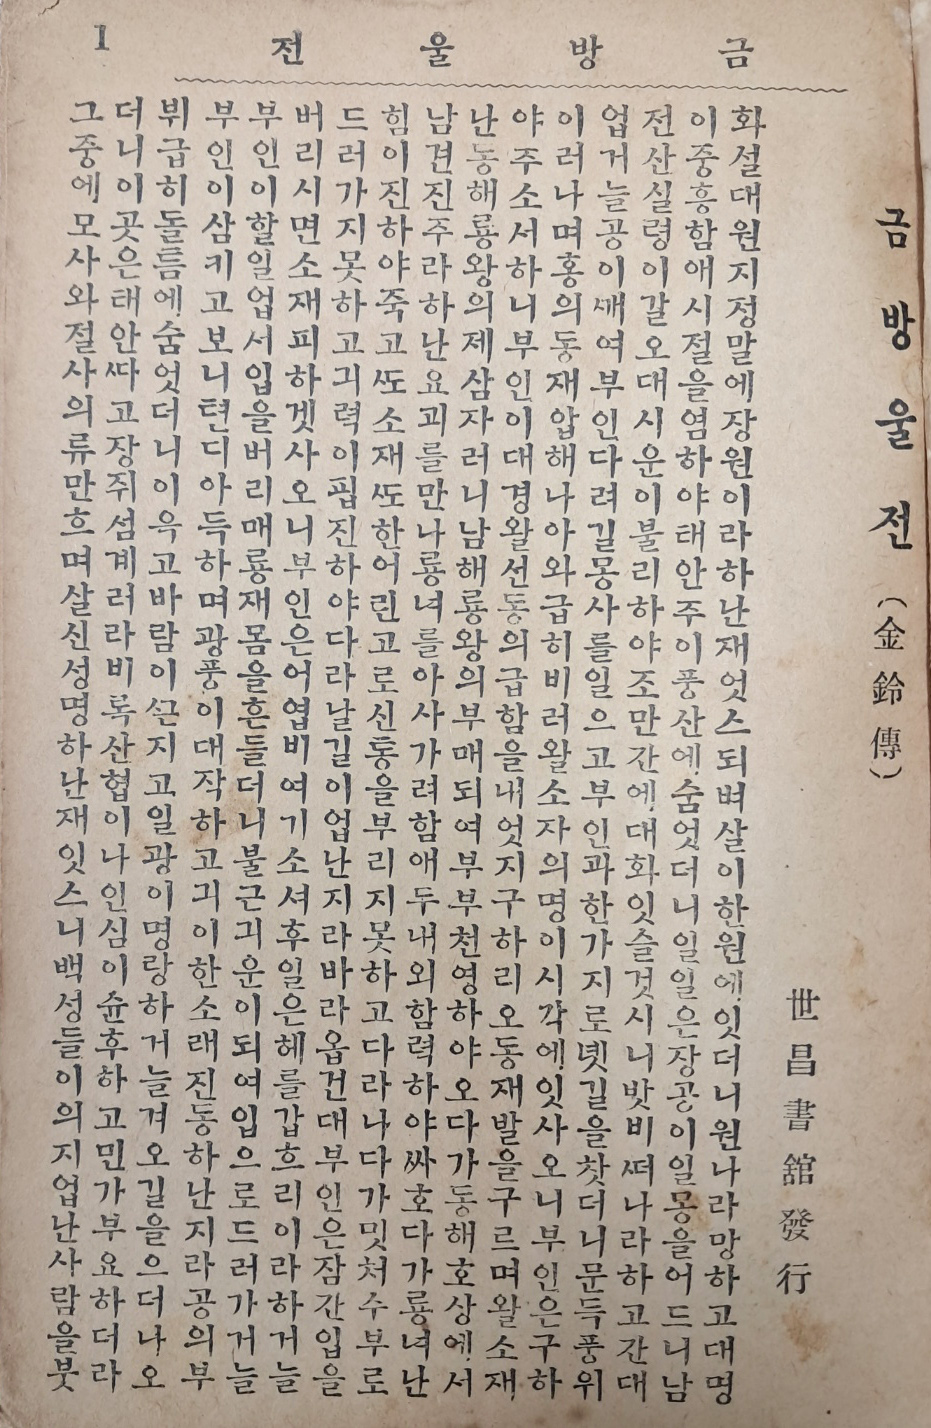 금방울전 1
금방울전 (金鈴傳)
世昌書舘發行
화설대원지정말에장원이라하난재엇스되벼살이한원에잇더니원나라망하고대명
이중흥함애시절을염하야태안주이풍산에숨엇더니일일은장공이일몽을어드니남
전산실령이갈오대시운이불리하야조만간에대화잇슬것시니밧비ᄯᅥ나라하고간대
업거늘공이ᄭᅢ여부인다려길몽사를일으고부인과한가지로녯길을찻더니문득풍위
이러나며홍의동재압해나아와급히비러왈소자의명이시각에잇사오니부인은구하
야주소서하니부인이대경왈선동의급함을내엇지구하리오동재발을구르며왈소재
난동해룡왕의제삼자러니남해룡왕의부매되여부부천영하야오다가동해호상에서
남견진주라하난요괴를만나룡녀를아사가려함애두내외함력하야싸호다가룡녀난
힘이진하야죽고ᄯᅩ소재ᄯᅩ한어린고로신통을부리지못하고다라나다가밋처수부로
드러가지못하고긔력이핍진하야다라날길이업난지라바라옵건대부인은잠간입을
버리시면소재피하겟사오니부인은어엽비여기소셔후일은혜를갑흐리이라하거늘
부인이할일업서입을버리매룡재몸을흔들더니불근긔운이되여입으로드러가거늘
부인이삼키고보니텬디아득하며광풍이대작하고긔이한소래진동하난지라공의부
뷔급히돌틈에숨엇더니이윽고바람이ᄭᅳᆫ지고일광이명랑하거늘겨오길을으더나오
더니이곳은태안ᄯᅡ고장쥐섬계러라비록산협이나인심이슌후하고민가부요하더라
그중에모사와절사의류만흐며살신성명하난재잇스니백성들이의지업난사람을붓